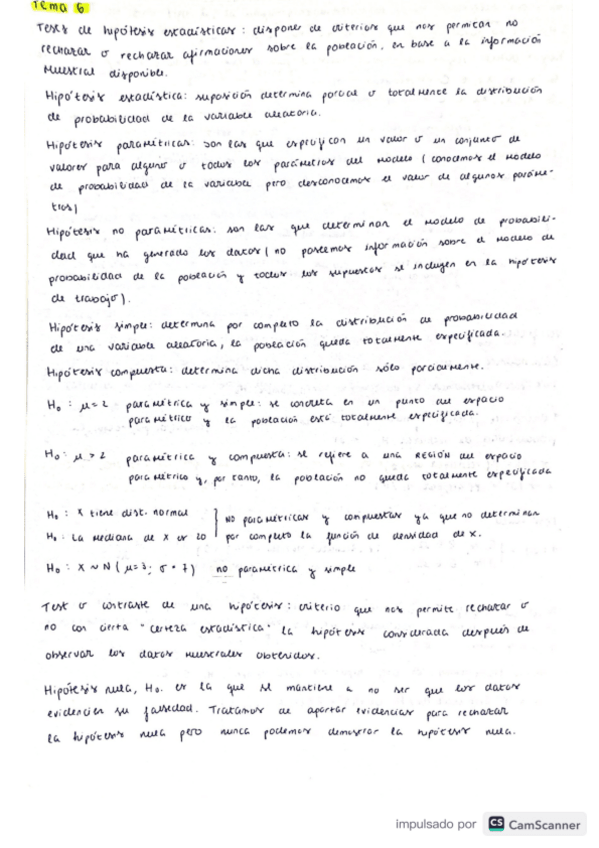 Tema 6
Tests de hipótesis estadísticas: disponer de criterios que nos permitan no
rechazar o rechazar afirmaciones sobre la población, en base a la información
muestral disponible.
Hipótesis estadística: suposición determina parcial o totalmente la distribución
de probabilidad de la variable aleatoria.
Hipótesis paramétricas: son las que especifican un valor o un conjunto de
valores para alguno o todos los parámetros del modelo (conocemos el modelo
de probabilidad de la variable pero desconocemos el valor de algunos paráme-
tros)
Hipótesis no paramétricas: son las que determinan el modelo de probabili-
dad que ha generado los datos (no poseemos información sobre el modelo de
probabilidad de la población y todos los supuestos se incluyen en la hipótesis
de trabajo).
Hipótesis simple: determina por completo la distribución de probabilidad
de una variable aleatoria, la población queda totalmente especificada.
Hipótesis compuesta: determina dicha distribución sólo parcialmente.
H₀: μ=2 paramétrica y simple: se concreta en un punto del espacio
paramétrico y la población está totalmente especificada.
H₀: μ>2 paramétrica y compuesta: se refiere a una REGIÓN del espacio
paramétrico y, por tanto, la población no queda totalmente especificada
H₀: X tiene dist. normal } No paramétricas y compuestas ya que no determinan
H₀: La mediana de X es 20 } por completo la función de densidad de X.
H₀: X ~ N(μ=3; σ=7) no paramétrica y simple
Test o contraste de una hipótesis: criterio que nos permite rechazar o
no con cierta "certeza estadística" la hipótesis considerada después de
observar los datos muestrales obtenidos.
Hipótesis nula, H₀. es la que se mantiene a no ser que los datos
evidencien su falsedad. Tratamos de aportar evidencias para rechazar
la hipótesis nula pero nunca podemos demostrar la hipótesis nula.
impulsado por CS CamScanner